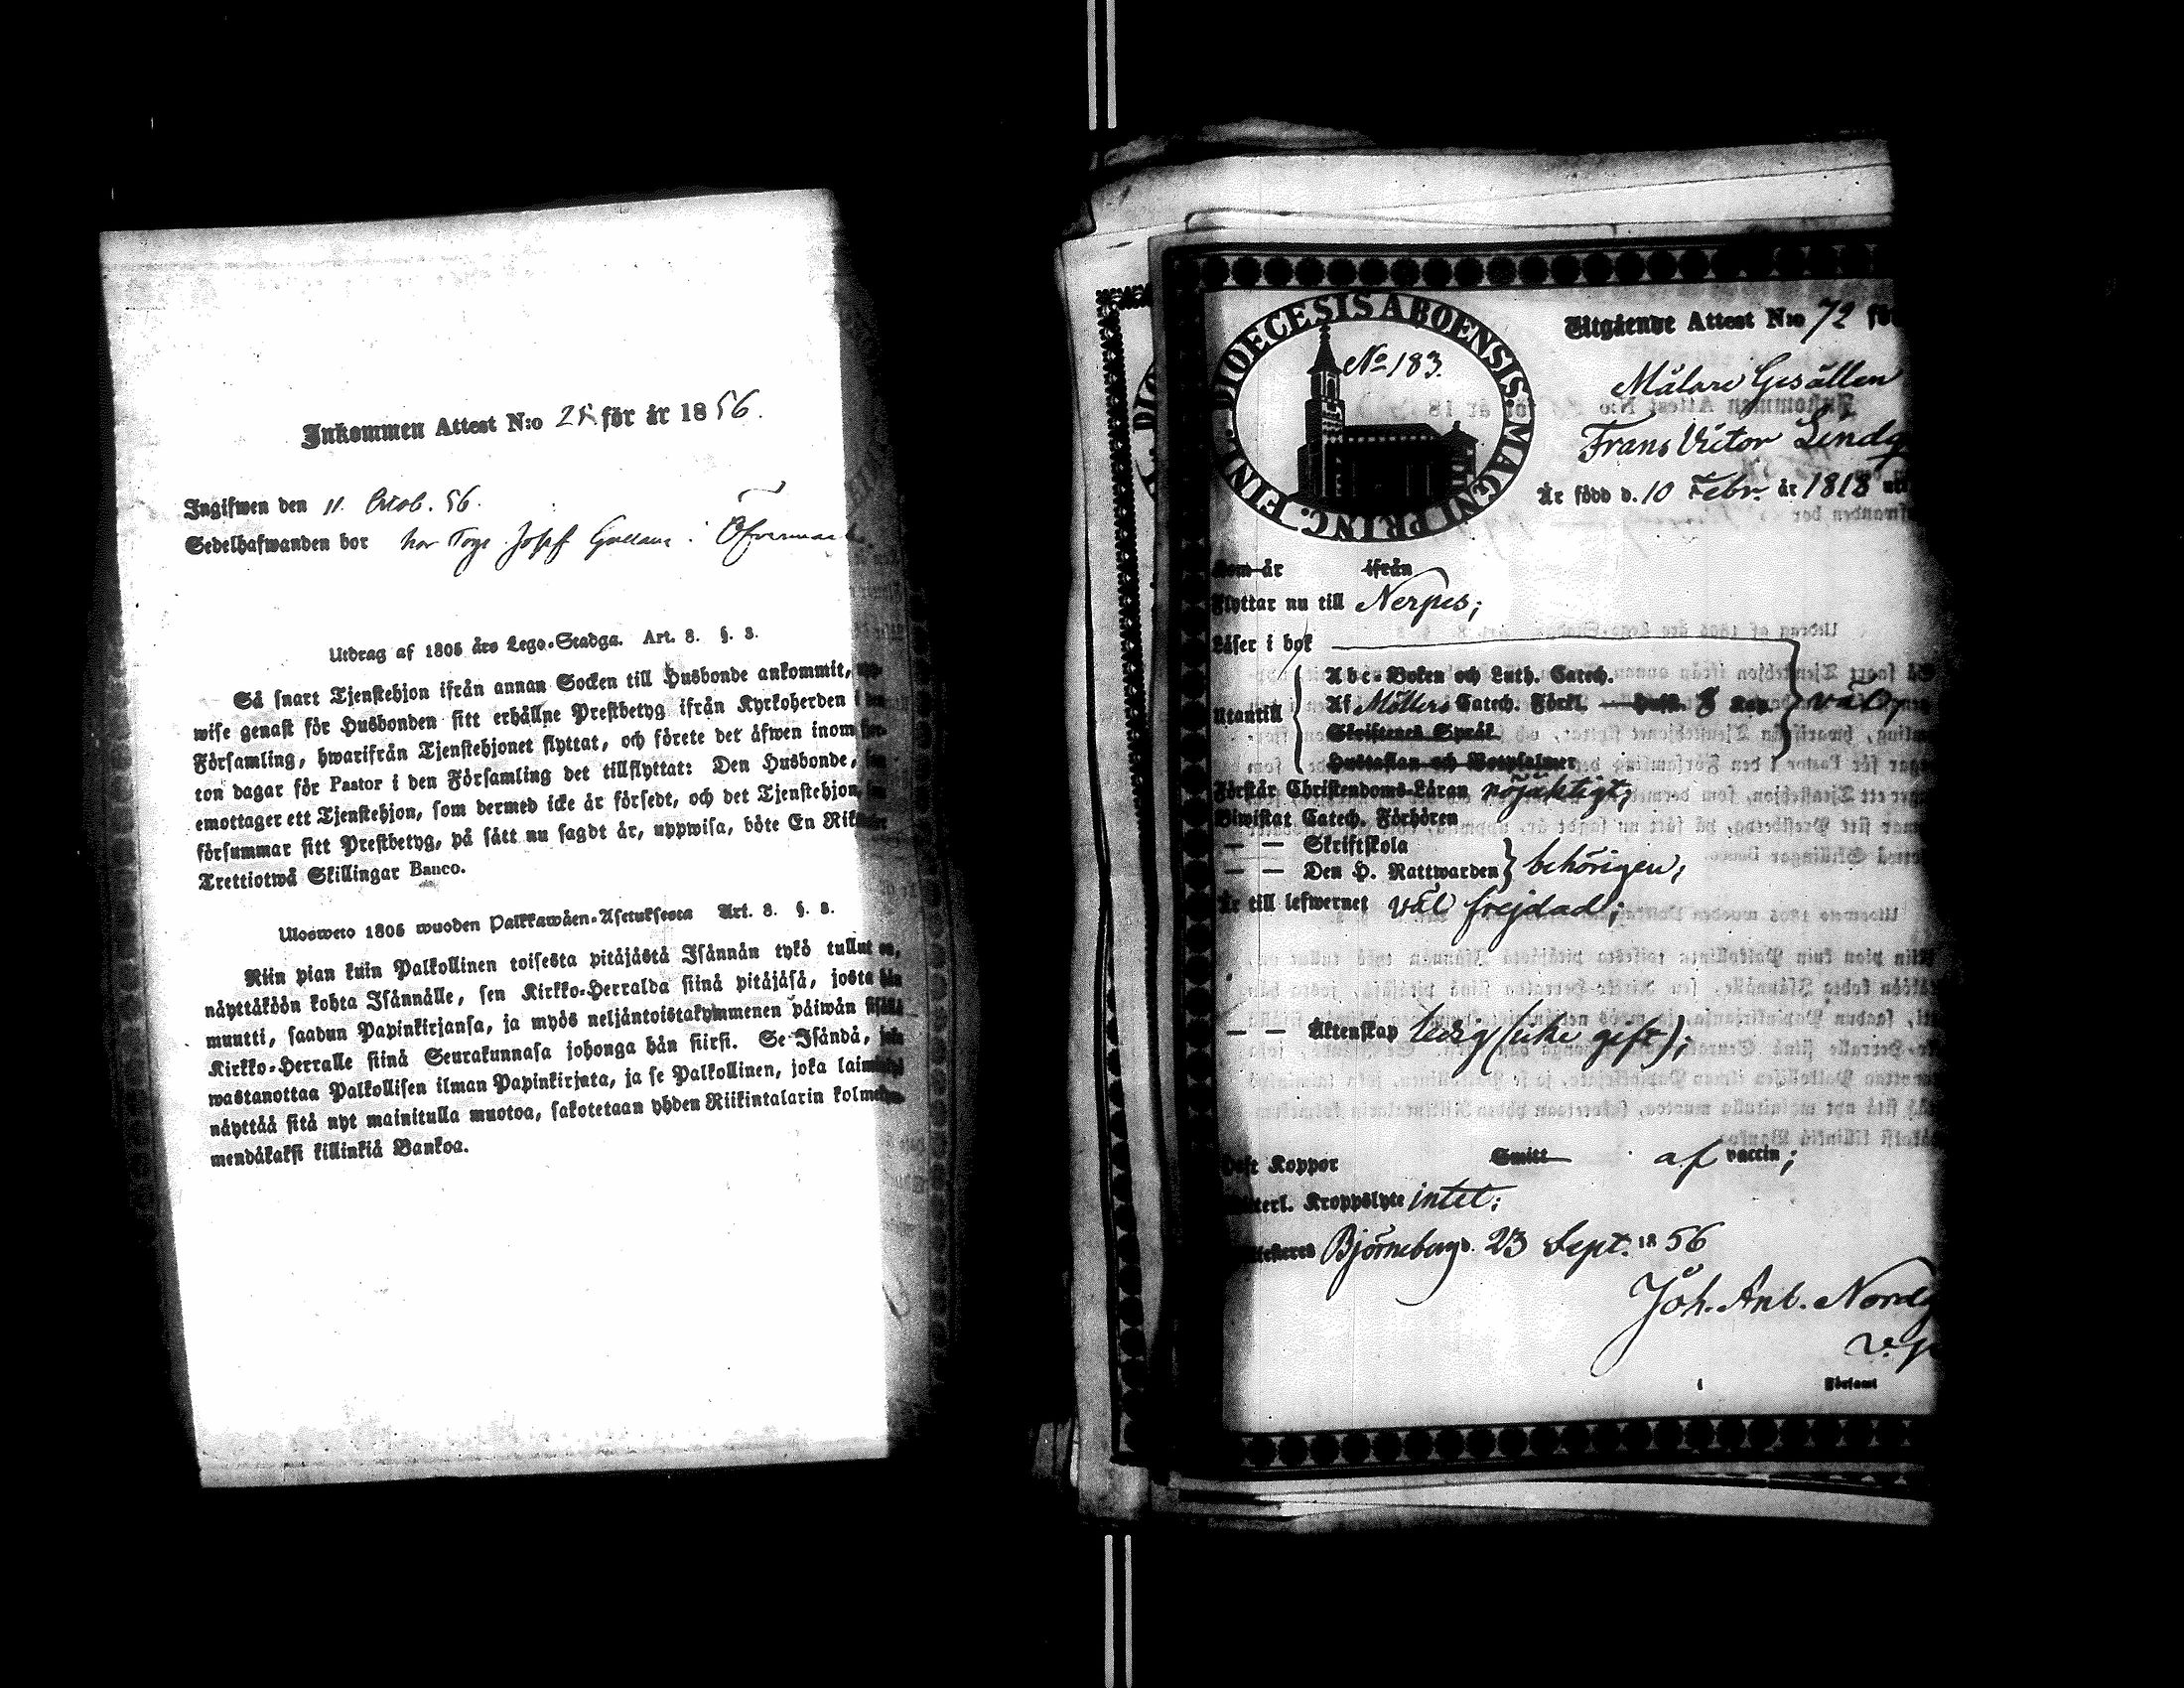 Inkommen Attest N:o för år 1856.
Ingifwen den 11 Octob. 56.
Sedelhafwanden bor hos Torp. Josef i Öfvermark
Utdrag af 1805 års Lego-Stadga. Art. 8. §. 3.
Så snart Tjenstehjon ifrån annan Socken till Husbonde ankommit,
wise genast för Husbonden sitt erhållne Prestbetyg ifrån Kyrkoherden i
Församling, hwarifrån Tjenstehjonet flyttat, och förete det åfwen inom
ton dagar för Pastor i den Församling det tillflyttat: Den Husbonde,
emottager ett Tjenstehjon, som dermed icke är försedt, och det Tjenstehjon,
försummar sitt Prestbetyg, på sätt nu sagdt är, uppwisa, böte En
Trettiotwå Skillingar Banco.
Ulosweto 1805 wuoden Palkkawäen-Asetuksesta Art. 8. §. 3.
Niin pian kuin Palkollinen toisesta pitäjästä Isännän tykö tullut on,
näyttäköön kohta Isännälle, sen Kirkko-Herralda siinä pitäjäsä, josta hän
muutti, saadun Papinkirjansa, ja myös neljäntoistakymmenen päiwän
Kirkko-Herralle siinä Seurakunnasa johonga hän siirsi. Se Isändä,
wastanottaa Palkollisen ilman Papinkirjata, ja se Palkollinen, joka
näyttää sitä nyt mainitulla muotoa, sakotetaan yhden Riikintalarin
mendäkaksi killinkiä Bankoa.
DIOECESIS ABOENSIS. MAGNI PRINC. FINL.
No 183.
Utgående Attest N:o 72 för
Målare Gesällen
Frans Victor
Är född d. 10 Febr. år 1818
Kom år ifrån
Flyttar nu till Nerpes;
Läser i bok
Utantill
Abc-Boken och Luth. Catech.
Af Möllers Catech. Förkl.
väl,
Skriftenes Språk
Hustaflan och Botpsalmer
Förstår Christendoms-Läran nöjaktigt;
Biwistat Catech. Förhören
— — Skriftskola
— — Den H. Nattwarden behörigen;
Är till lefwernet väl frejdad;
— — Äktenskap ledig (icke gift);
Haft Koppor Smitt af vaccin;
Kroppslyte intet;
Björneborg d. 23 Sept. 1856
Joh. Ant.
v.
i Församl